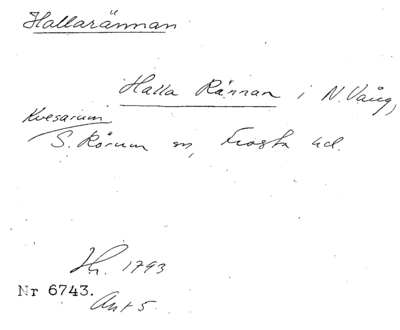 Hallarännan
Halla Rännan i N. Vång,
Kvesarum
S. Rörum sn, Frosta hd.
Hh. 1793
Nr 6743.
Akt 5.